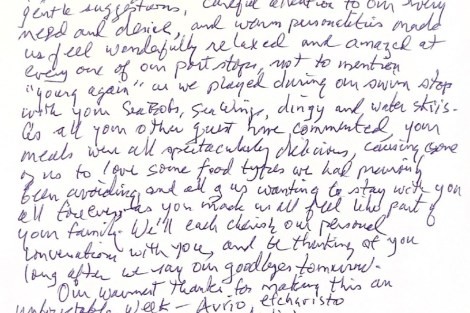 gentle suggestions, careful attention to our every
need and desire, and warm personalities made
us feel wonderfully relaxed and amazed at
every one of our port stops, not to mention
"young again" as we played during our swim stops
with your SeaBobs, SeaWing, dingy and water skis.
As all your other guest have commented, your
meals were all spectacularly delicious, causing some
of us to love some food types we had previously
been avoiding, and all of us wanting to stay with you
all forever as you made us all feel like part of
your family. We'll each cherish our personal
conversations with you, and be thinking of you
long after we say our goodbyes tomorrow.
Our warmest thanks for making this an
unforgettable week – Avrio, efcharisto